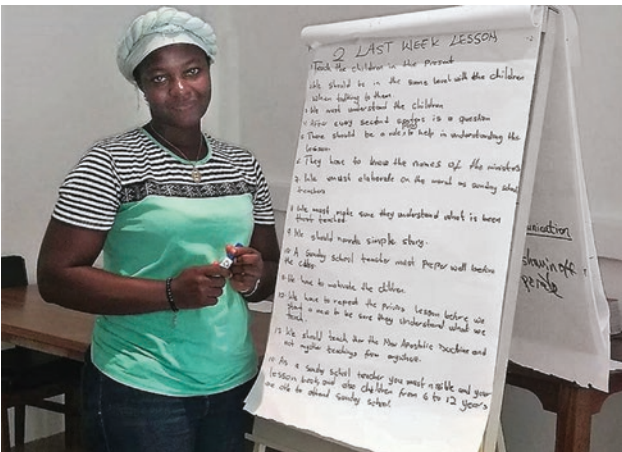 2 LAST WEEK LESSON
Teach the children in the present
We should be in the same level with the children
When talking to them.
We must understand the children
After every second is a question
There should be a to help in understanding the
lesson.
They have to know the names of the ministers
7. We must elaborate on the word as sunday school
teachers
We must make sure they understand what is been
teached
We should simple story.
A Sunday school teacher must well before
the
We have to motivate the children.
We have to repeat the lesson before we
start a new to be sure they understand what we
teach.
13 We should teach the New Apostolic Doctrine and
not teachings from anywhere.
As a sunday school teacher you must bible and your
lesson book and also children from 6 to 12 years
are to attend sunday school
unication
showin off
people